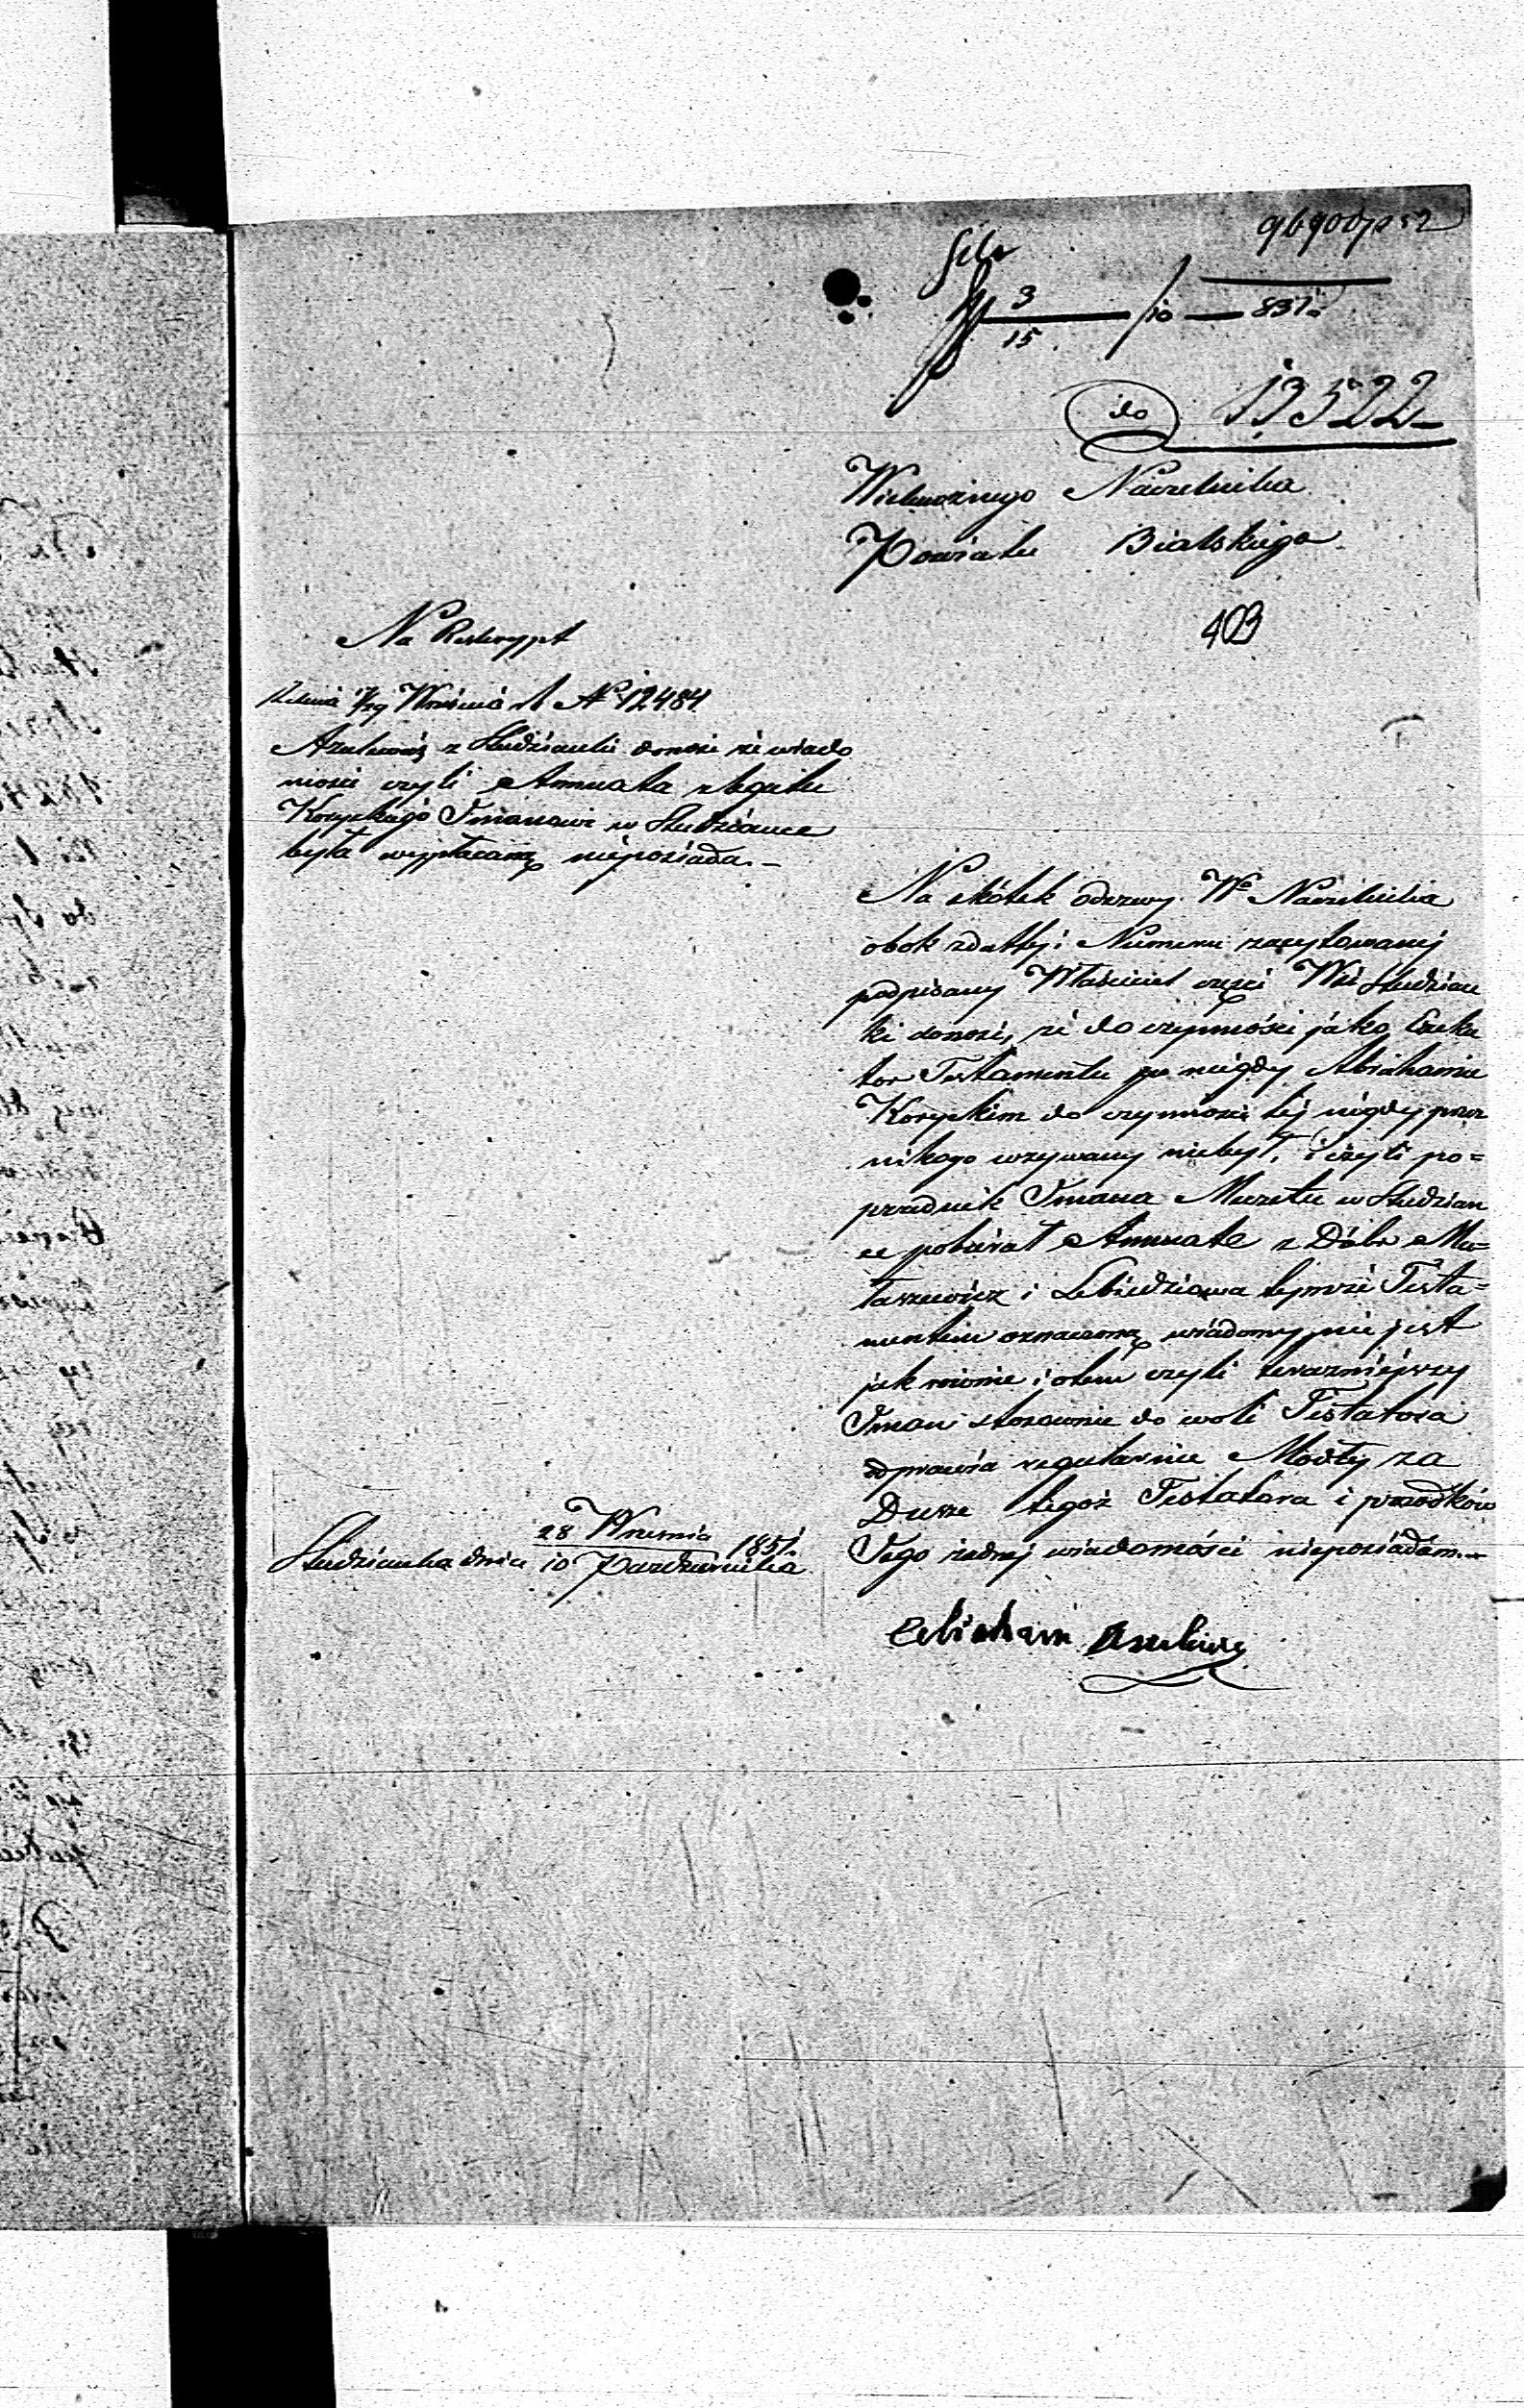 3/15 /10 — 851
do 13522
Wielmożnego Naczelnika
Powiatu Bialskiego
403
Na Reskrypt
Wrześnià N° 12484
Azulewicz z Studzianki donosi że wiado
mości czyli Annuata z legatu
Koryckiego Imanowi w Studziance
była wypłacaną nieposiada.—
Na skótek odezwy W° Naczelnika
obok z datty i Numeru zacytowanej
podpisany Właściciel części Wsi Studzian
ki donosi, że do czynności jako Exeku
tor Testamentu po niegdy Abrahamie
Koryckim do czynności tej nigdy przez
nikogo wzywany niebył, i czyli po=
przednik Imana Muzułu w Studzian
ce pobierał Annuate z Dóbr Ma=
łaszewicz i Lebiedziowa tymże Testa=
mentem oznaczoną wiadomym nie jest
jak równie i otem czyli teraźniejszy
Iman stosownie do woli Testatora
odprawia regularnie Modły za
Dusze tegoż Testatora i przodków
Jego żadnej wiadomości nieposiadam.—
Studzianka dnia 28 Wrzesnia / 10 Pazdziernika 1851
Abraham Azulewicz